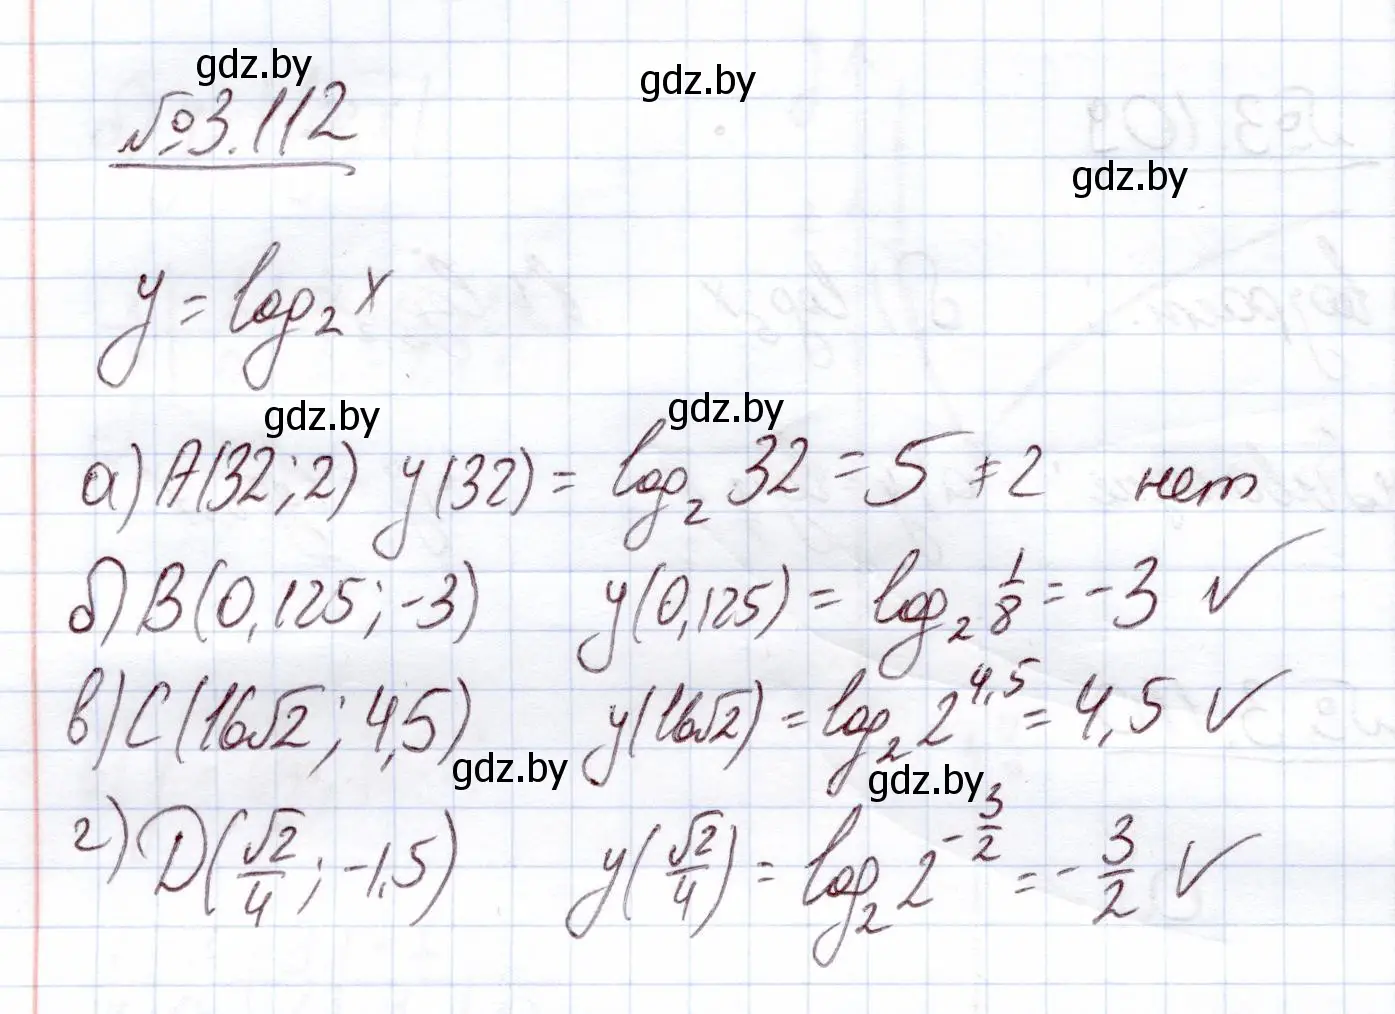 gdz.by
gdz.by
№3.112
gdz.by
y = log₂ x
gdz.by
gdz.by
а) A(32; 2) y(32) = log₂ 32 = 5 ≠ 2 нет
б) B(0,125; -3) y(0,125) = log₂ 1/8 = -3 ✓
в) C(16√2; 4,5) y(16√2) = log₂ 2^4,5 = 4,5 ✓
gdz.by
gdz.by
г) D(√2/4; -1,5) y(√2/4) = log₂ 2^(-3/2) = -3/2 ✓